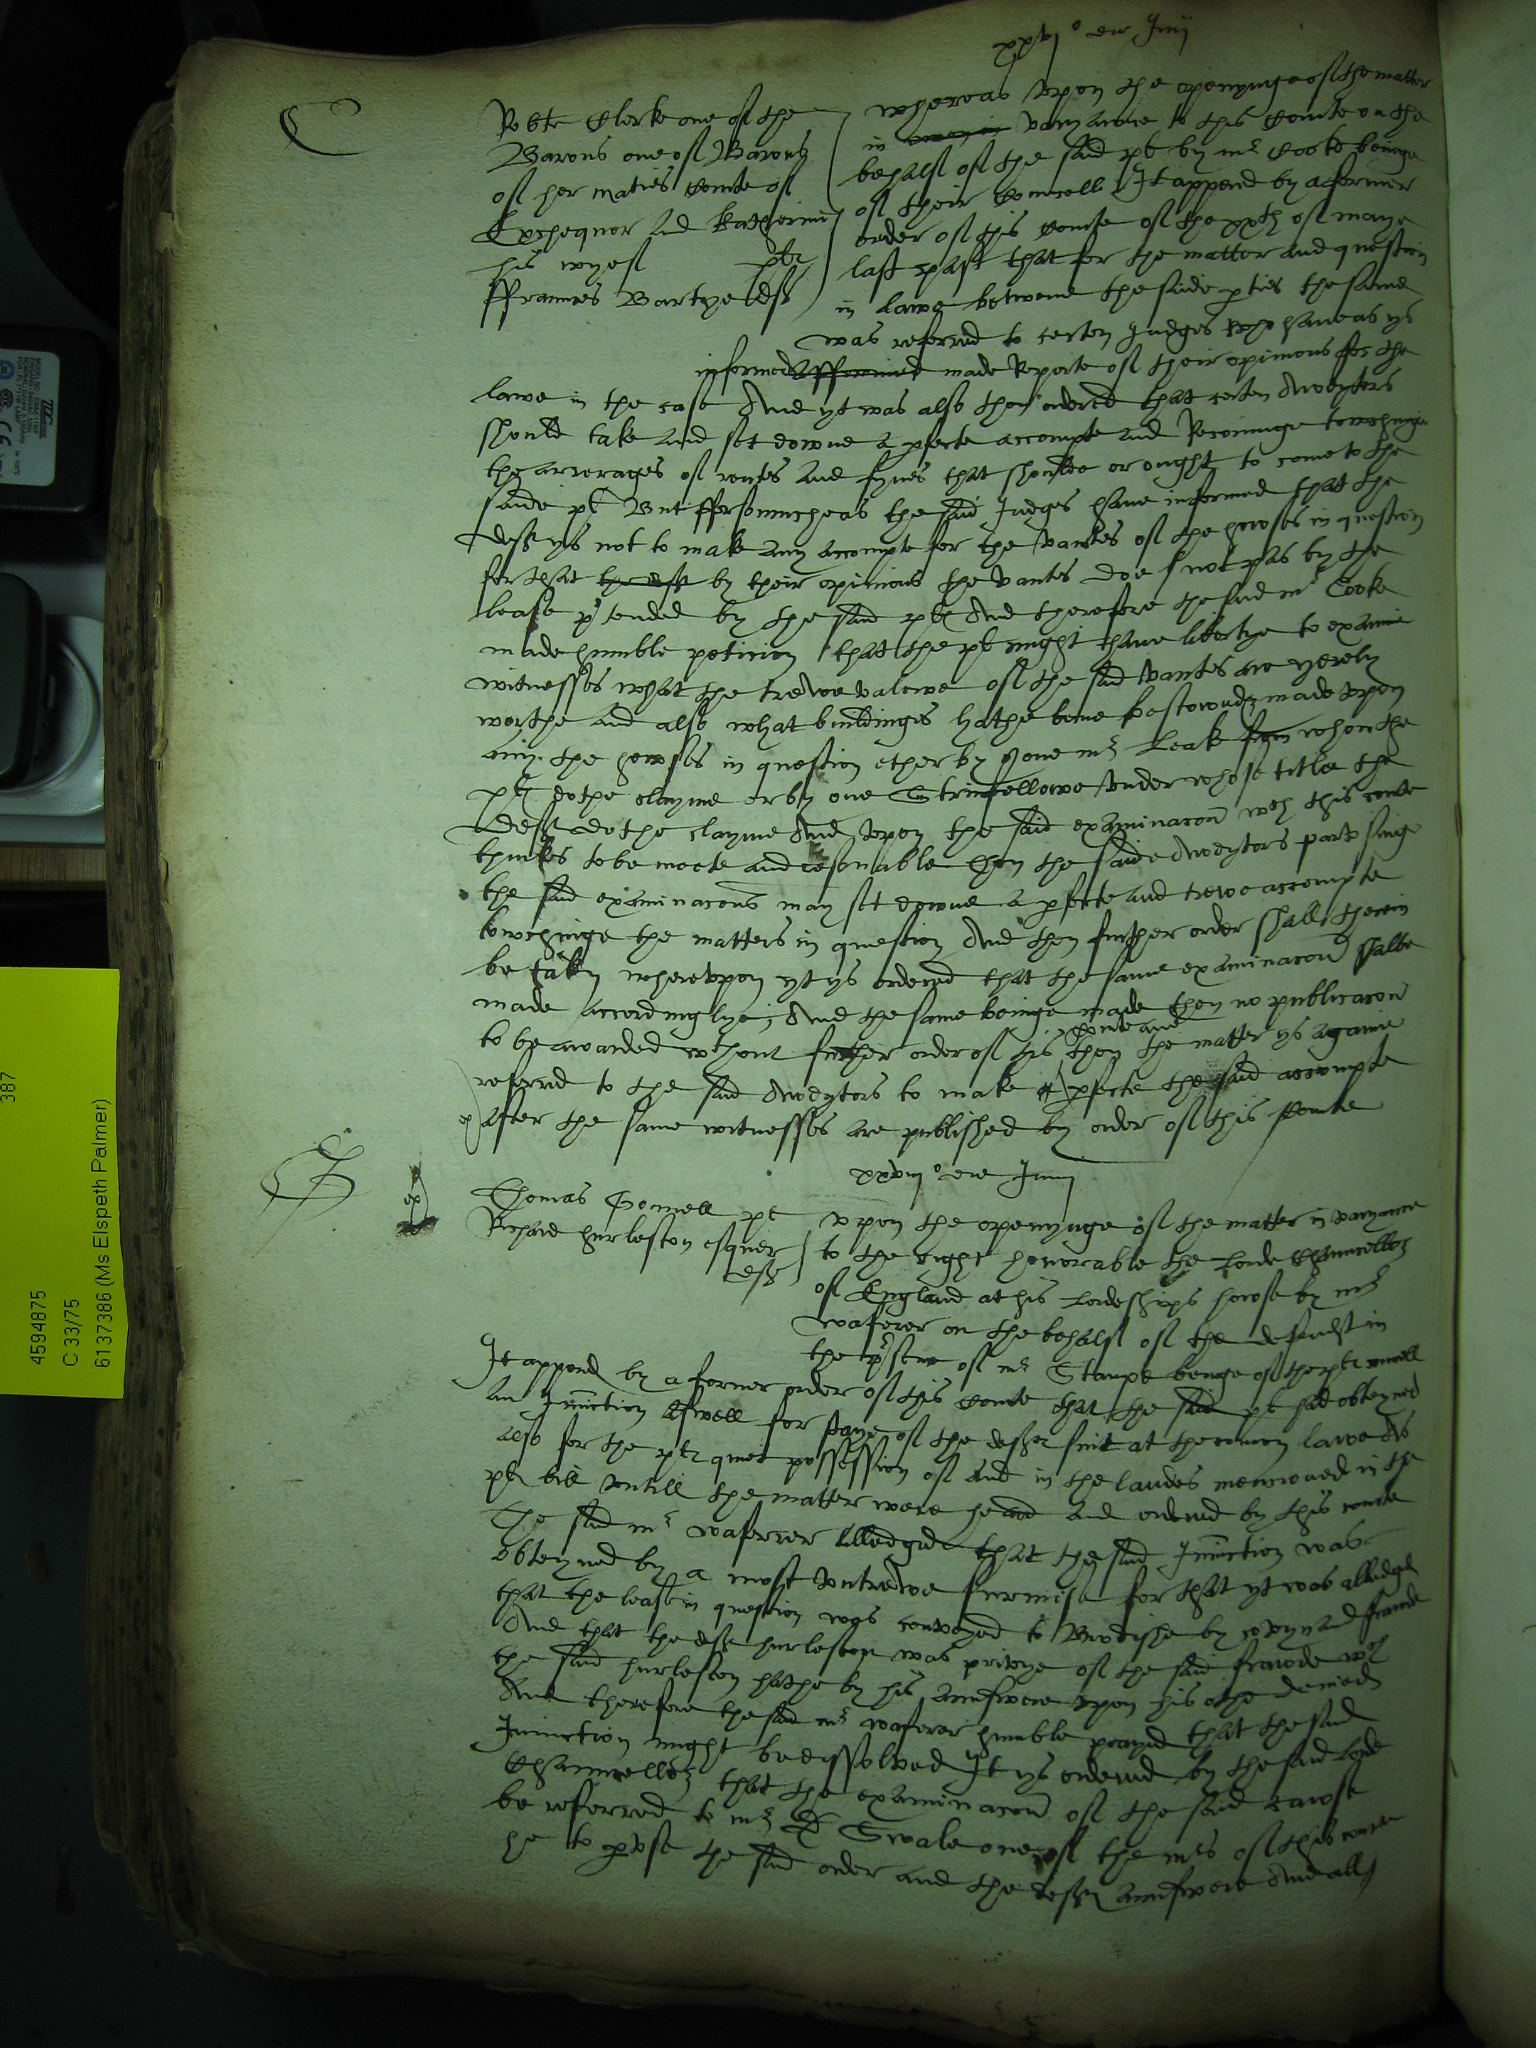 xxvjo die Junij
C
Robte Clerke one of the
Barons one of Barons
of her maties Courte of
Exchequer and Katherine
his wyef plts
ffraunces Bartye deft
whereas upon the openynge of the matter
in varyaunce to this Courte on the
behalf of the said plt by mr Cooke beinge
of their Councell It appered by a former
order of this Courte of the xxth of maye
last past that for the matter and question
in Lawe betwene the saide pties the same
was referred to certen Judges who have as ys
informed made Reporte of their opinions for the
lawe in the case And yt was also then ordered that certen Awdytors
should take and set downe a pfecte accompte and Reconinge towchinge
the arrerages of rentes and fynes that shoulde or ought to come to the
saide plt But fforsomuche as the said Judges have informed that the
deft ys not to make any accompte for the vawtes of the howses in question
for that the deft by their opinions the vautes doe not pas by the
lease ptended by the said plt And therefore the said mr Cooke
made humble peticion that the plt might have libertye to examine
witnesses what the trewe valewe of the said vautes are yerely
worthe and also what buildinges hathe bene bestowed & made upon
any the howses in question ether by one mr Leak from whom the
plt dothe clayme or by one Stringfellowe under whose title the
deft dothe clayme And upon the said examinacon wch this courte
thinkes to be meete and resonable Then the saide Awdytors parusinge
the said examinacons may set downe a pfecte and trewe accompte
towchinge the matters in question And then further order shall therein
be taken whereupon yt ys ordered that the same examinacon shalbe
made accordinglye, And the same beinge made then no publicacon
to be awarded wthout further order of this Courte and then the matter ys againe
referred to the said Awdytors to make & pfecte the said accompte
after the same witnesses are published by order of this Courte
xxviijo die Junij
G
ex
Thomas Gonnell plt
Richard hurleston esquier
deft
upon the openynge of the matter in varyaunce
to the right honorable the Lorde Chauncellor
of England at his Lordeships howse by mr
waferer on the behalf of the defendt in
the psence of mr Stampe beinge of the plts councell
It appered by a former order of this Courte that the said plt had obteyned
an Iniunction aswell for staye of the defts suit at the comon lawe As
also for the plts quiet possession of and in the landes mencioned in the
plts bill untill the matter were heard and ordered by this courte
The said mr waferrer alledged that the said Iniunction was
obteyned by a most untrewe surmise for that yt was alledged
that the lease in question was conveyed to Burdishe by covyn and fraude
And that the deft hurleston was privye of the said frawde wch
the said hurleston hathe by his aunswere upon his othe denied
And therefore the said mr waferer humblie prayed that the said
Iniunction might be dissolved It ys ordered by the said Lorde
Chauncellor that the examinacon of the said cawse
be referred to mr D Swale one of the mrs of this courte
he to pvse the said order and the defts aunswere And all
387
4594875
C 33/75
6137386 (Ms Elspeth Palmer)